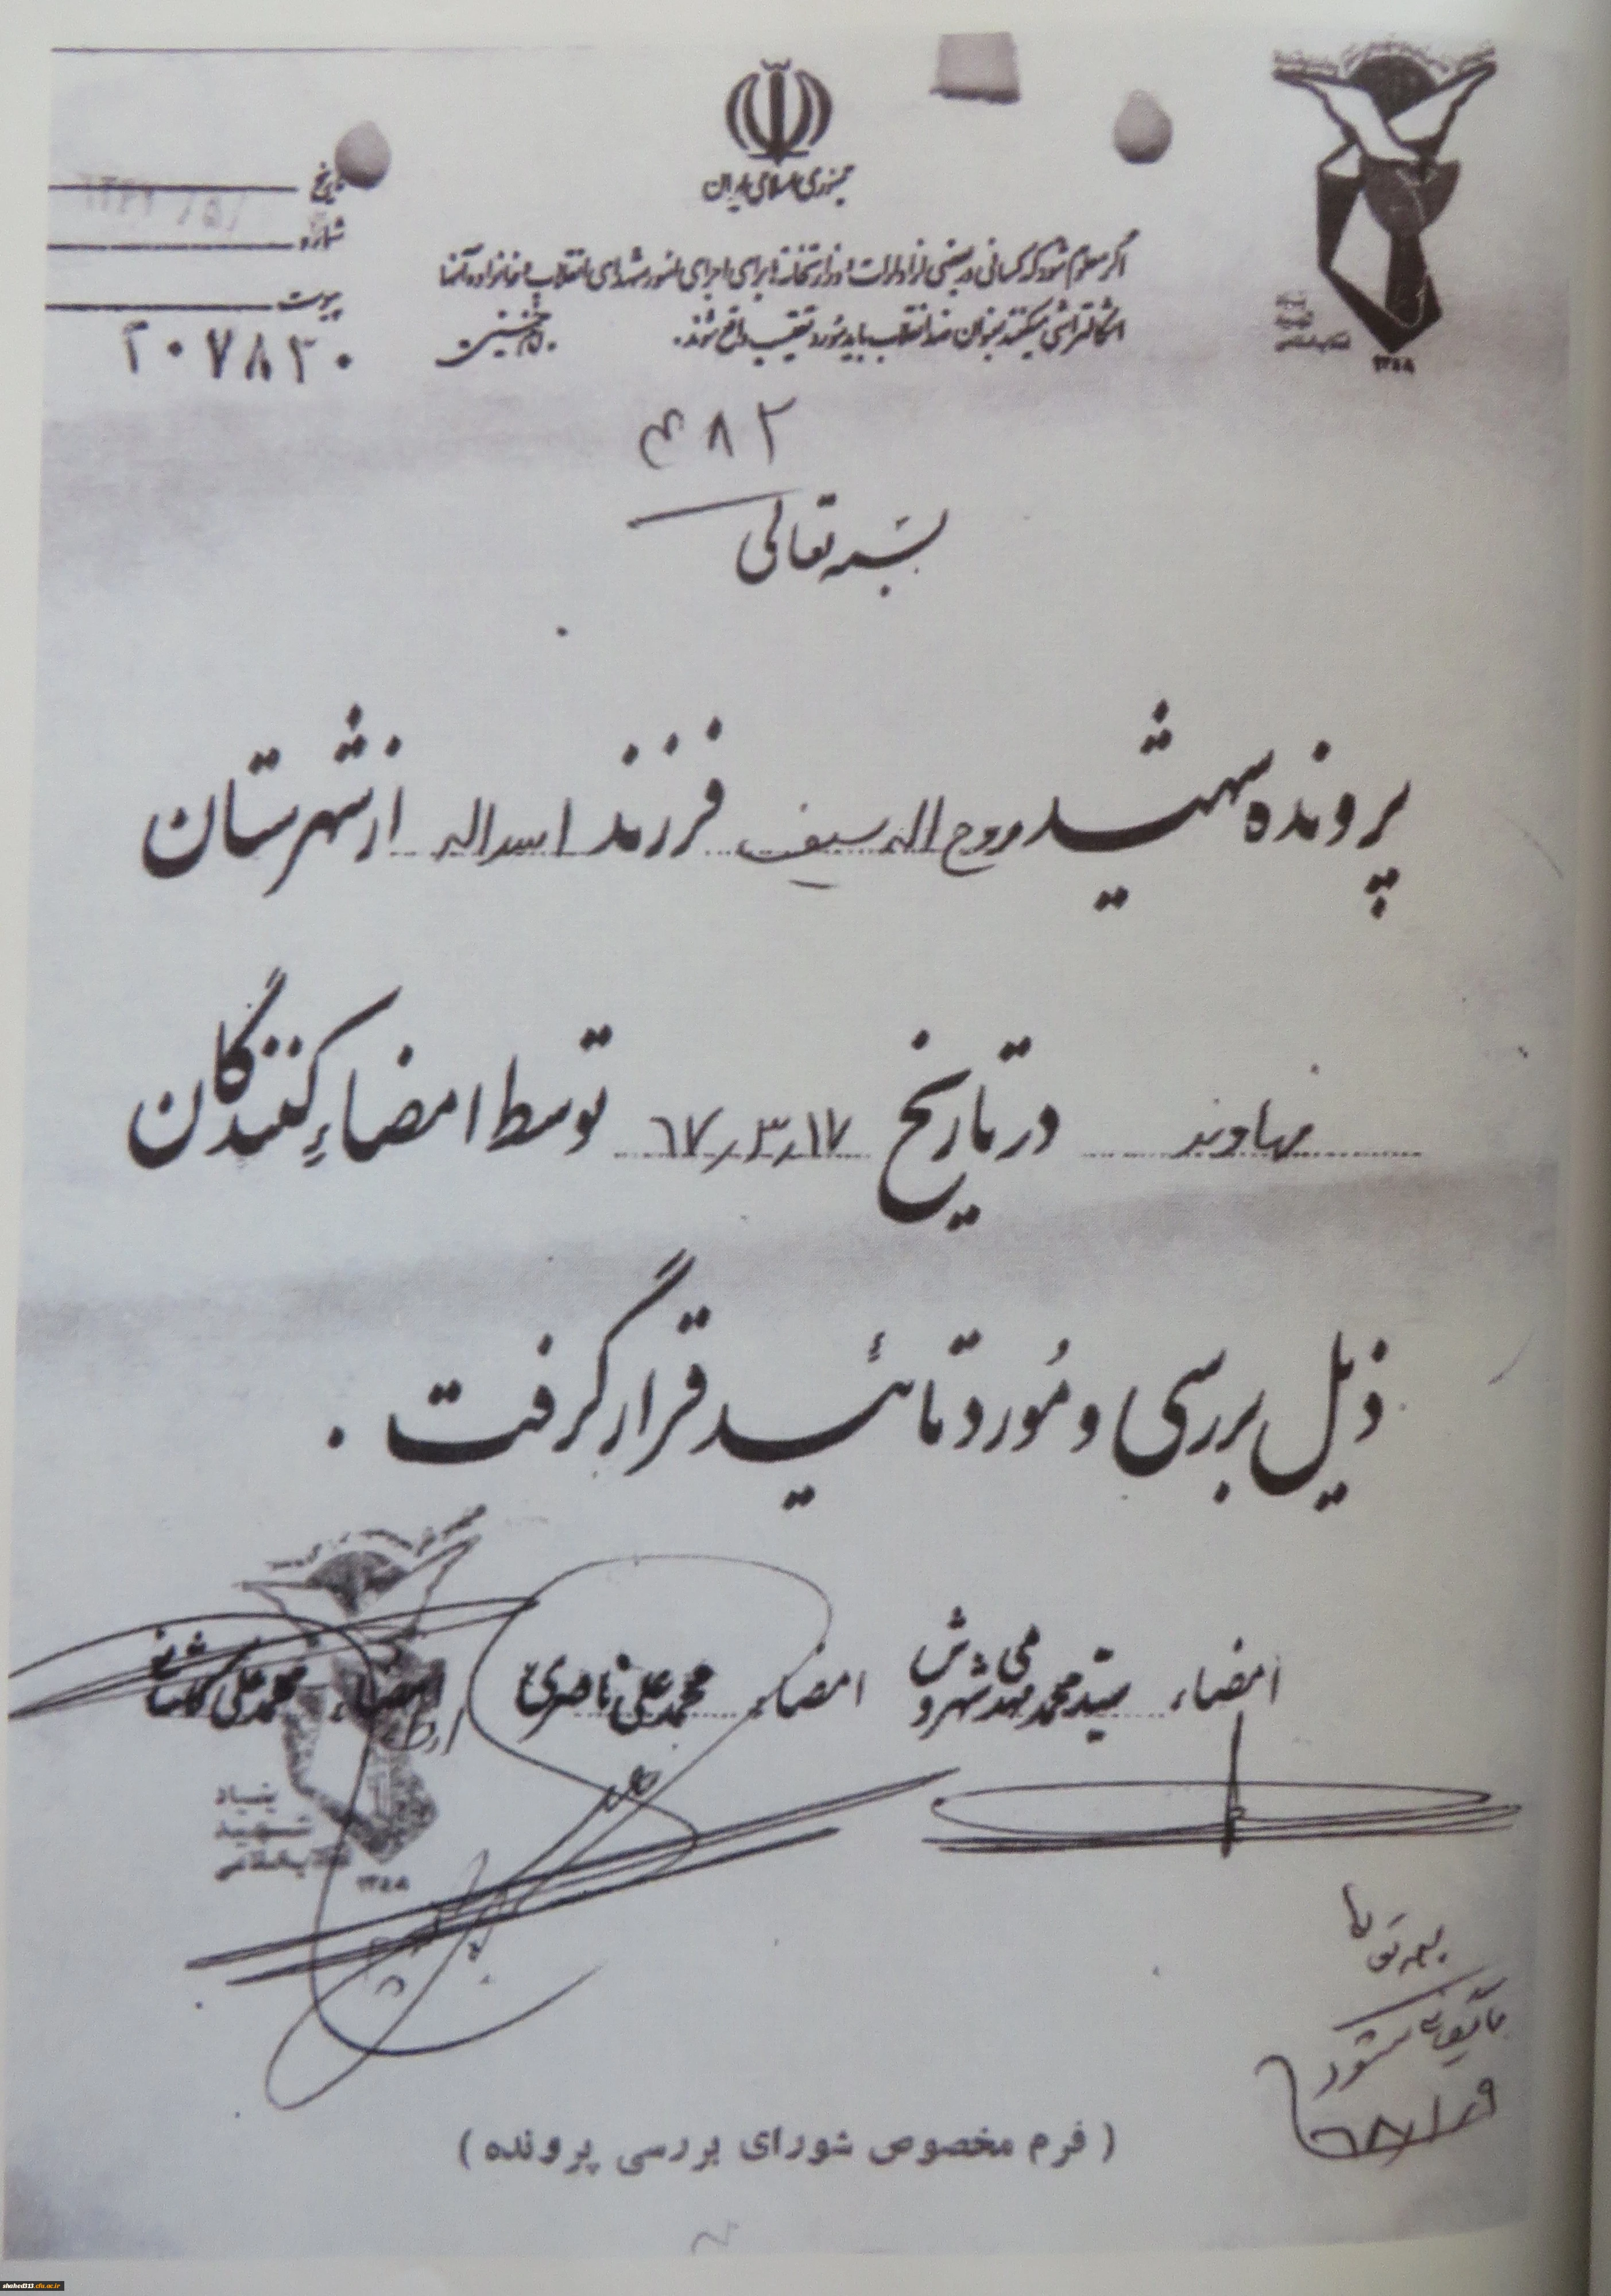 جمهوری اسلامی ایران
تاریخ
شماره
پیوست
۲۰۷۸۳۰
اگر معلوم شود که کسانی در بعضی از ادارات و وزارتخانه‌ها برای اجرای امور شهدای انقلاب و خانواده آنها
اشکالتراشی میکنند بعنوان ضد انقلاب باید مورد تعقیب واقع شوند. امام خمینی
انقلاب اسلامی
۱۳۵۸
۴۸۲
بسمه تعالی
پرونده شهید روح اله سیف فرزند اسداله از شهرستان
نهاوند در تاریخ ۶۷٫۳٫۱۷ توسط امضاء کنندگان
ذیل بررسی و مورد تائید قرار گرفت .
امضاء سید محمد مهدی شهروش امضاء محمد علی ناصری امضاء محمد علی
بنیاد
شهید
انقلاب اسلامی
۱۳۵۸
بسمه تعالی
شود
( فرم مخصوص شورای بررسی پرونده )
shahed313.cfu.ac.ir